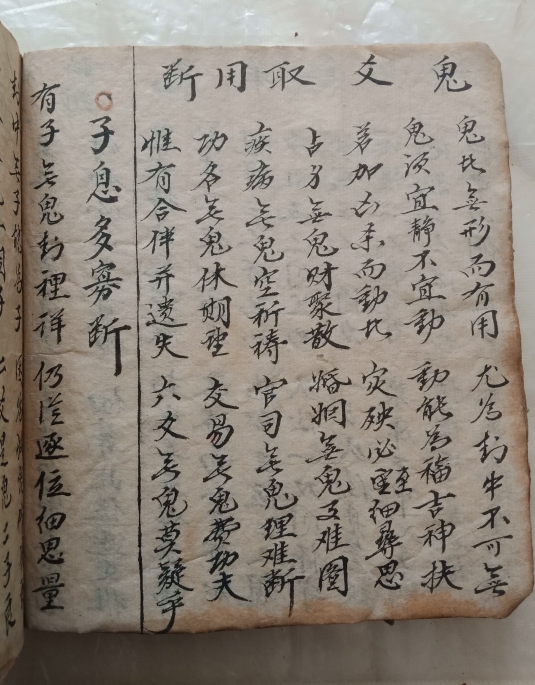 鬼爻取用断
鬼比無形而有用 尤為卦中不可無
鬼須宜静不宜動 動能為福吉神扶
若加凶杀而動比 灾殃必至細尋思
占分無鬼财聚散 婚姻無鬼又难圖
疾病無鬼空祈祷 官司無鬼理难断
功名無鬼休期望 交易無鬼费功夫
惟有合伴并遗失 六爻無鬼莫疑乎
子息多寡断
有子無鬼卦裡详 仍從逐位細思量